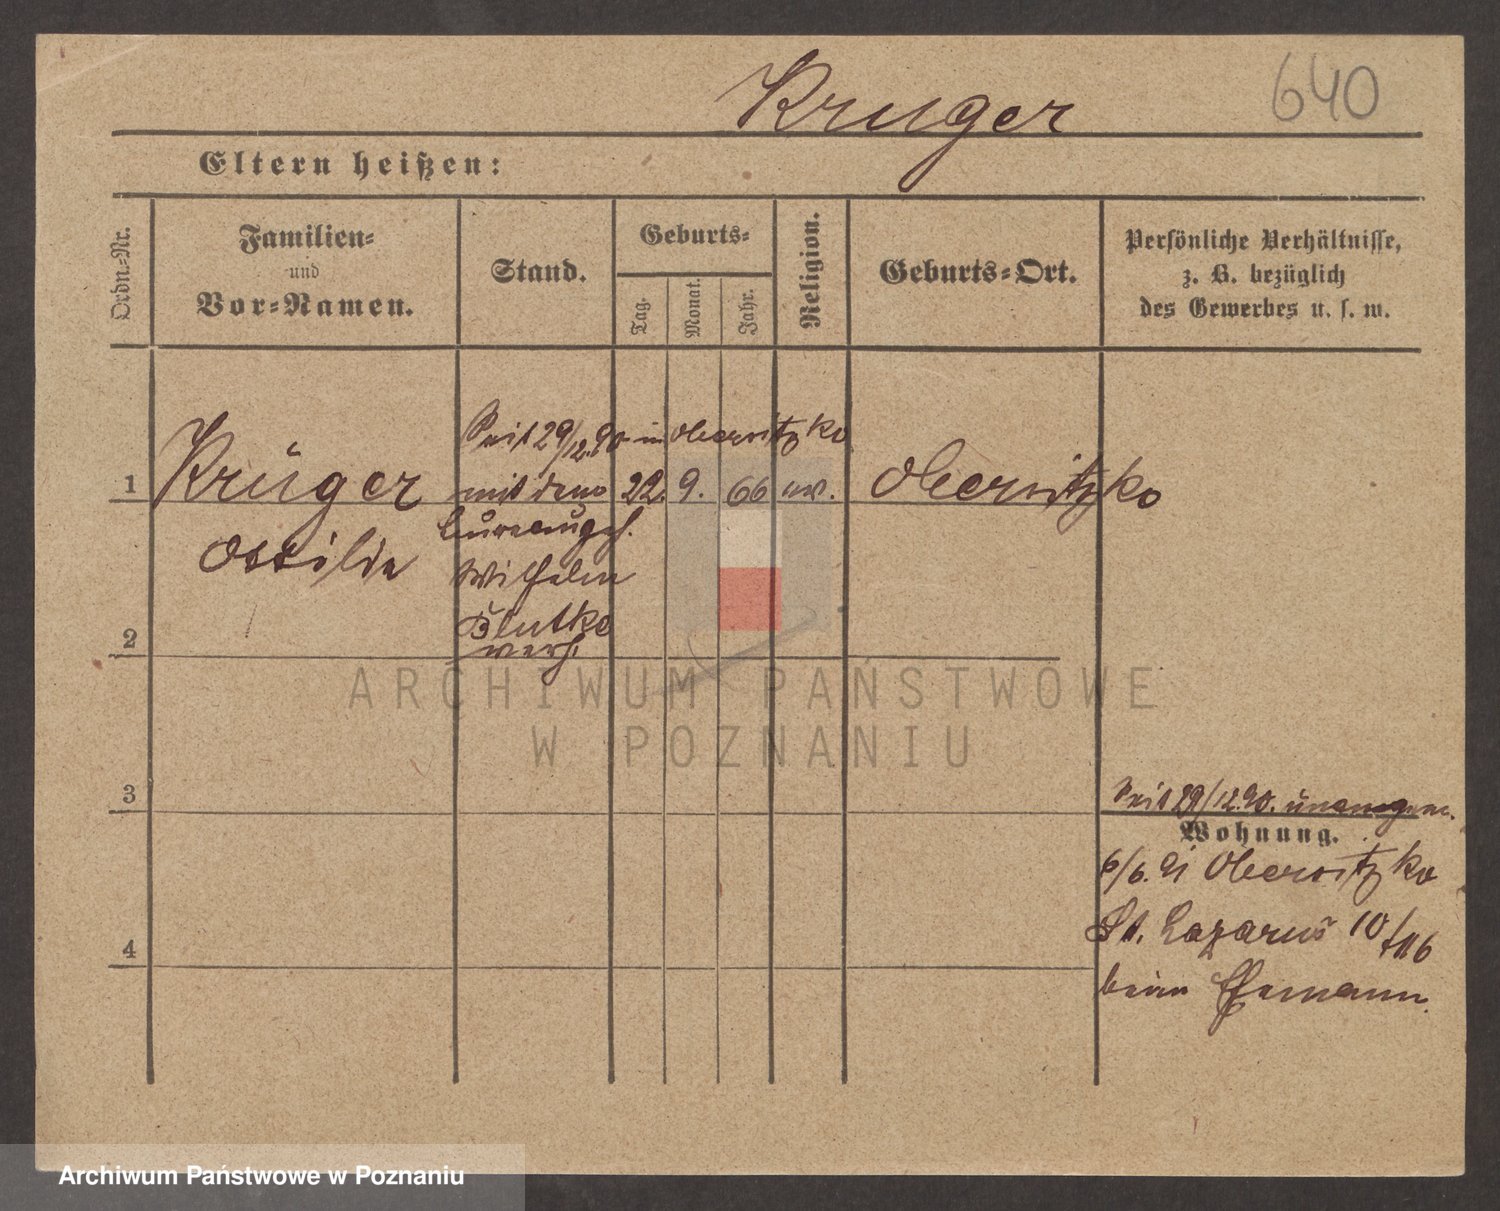 Kruger
640
Eltern heißen:
Ordn.=Nr.
Familien=
und
Vor=Namen.
Stand.
Geburts=
Tag.
Monat.
Jahr.
Religion.
Geburts=Ort.
Persönliche Verhältnisse,
z. B. bezüglich
des Gewerbes u. s. w.
Seit 29/12.90 in Obersitzko
1
Krüger
mit dem
22.
9.
66
ev.
Obersitzko
Ottilie
Büreaugeh.
Wilhelm
verh.
2
ARCHIWUM PAŃSTWOWE
W POZNANIU
3
Seit 29/12.90.
Wohnung.
6/6. 91 Obersitzko
St. Lazarus 10/
4
beim Ehemann.
Archiwum Państwowe w Poznaniu